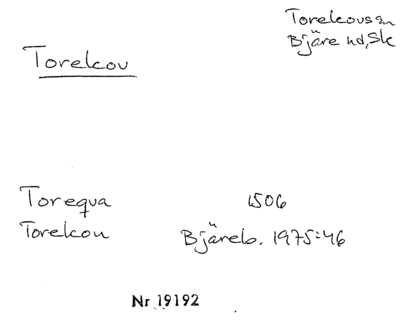 Torekovs sn
Bjäre hd, Sk
Torekov
Torequa 1506
Torekou Bjäreb. 1975:46
Nr 19192